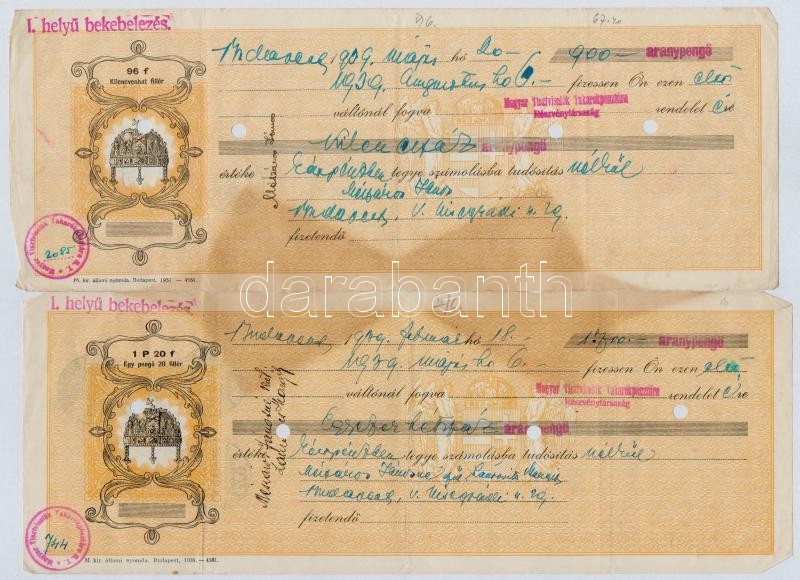 I. helyű bekebelezés.
Budapest, 1939. május hó 20- 900- aranypengő
96 f
Kilencvenhat fillér
1939. Augusztus hó 6.- fizessen Ön ezen első
váltónál fogva Magyar Tisztviselők Takarékpénztára
Részvénytársaság rendelet
Kilencszáz aranypengő
értéke Készpénzben tegye számolásba tudósítás nélkül
Mészáros János
Mészáros János
Budapest, V. Visegrádi u. 29.
fizetendő
Magyar Tisztviselők Takarékpénztára R.T.
2085
M. kir. állami nyomda. Budapest, 1931 — 4581.
darabanth
I. helyű bekebelezés.
Budapest, 1939. február hó 18.- aranypengő
1 P 20 f
Egy pengő 20 fillér
1939. május hó 6.- fizessen Ön ezen első
váltónál fogva Magyar Tisztviselők Takarékpénztára
Részvénytársaság rendelet
aranypengő
értéke Készpénzben tegye számolásba tudósítás nélkül
Mészáros Jánosné
Mészáros Jánosné
Budapest, V. Visegrádi u. 29.
fizetendő
Magyar Tisztviselők Takarékpénztára R.T.
744
M. kir. állami nyomda. Budapest, 1938. — 4581.